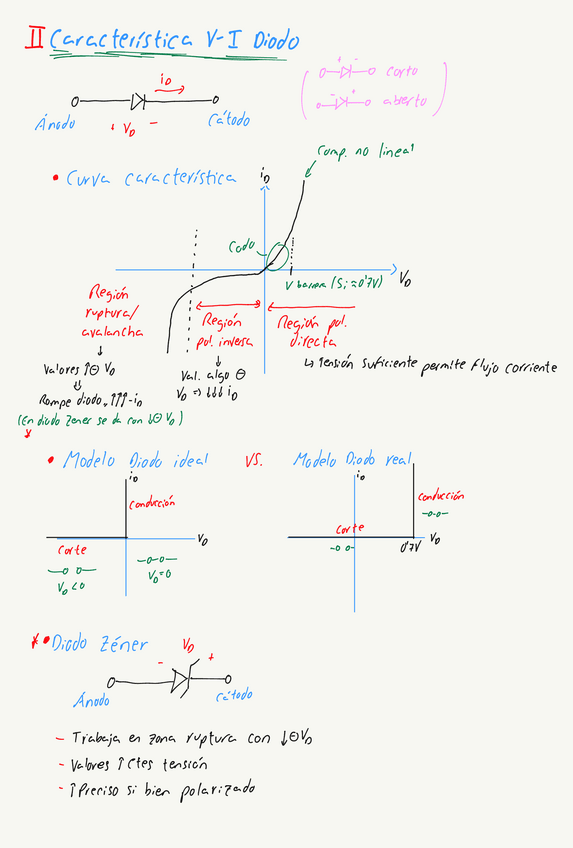 II Característica V-I Diodo
+ - corto
- + abierto
iD
Ánodo + VD - Cátodo
• Curva característica
iD
Comp. no lineal
Codo
VD
V barrera (Si ≈ 0'7V)
Región ruptura/ avalancha
Región pol. inversa
Región pol. directa
↳ tensión suficiente permite flujo corriente
Valores ↑⊖ VD
Rompe diodo, ↑↑↑-iD
(En diodo Zener se da con ↓⊖ VD)
*
Val. algo ⊖
VD => ↓↓↓ iD
• Modelo Diodo ideal VS. Modelo Diodo real
iD
Conducción
VD
Corte
VD<0
VD=0
iD
Conducción
Corte
0'7V
VD
* • Diodo Zéner
- VD +
Ánodo
Cátodo
- Trabaja en zona ruptura con ↓⊖VD
- Valores ↑Ctes tensión
- ↑Preciso si bien polarizado